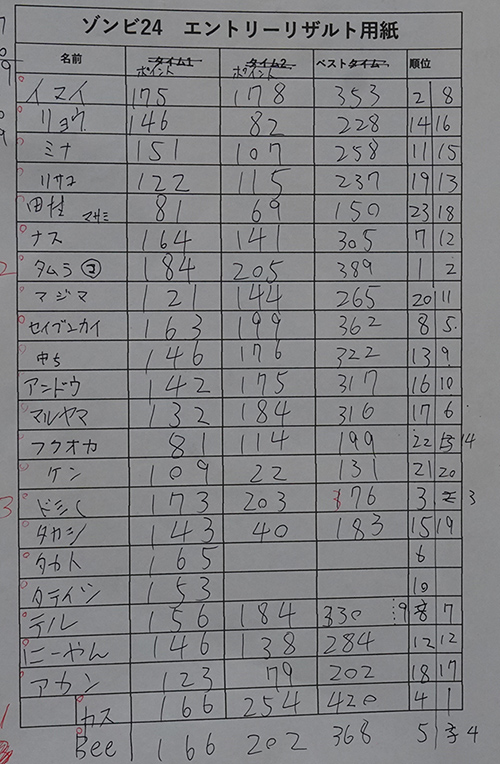 ゾンビ24 エントリーリザルト用紙
名前 タイム1 ポイント タイム2 ポイント ベストタイム 順位
イマイ 175 178 353 2 8
リョウ 146 82 228 14 16
ミナ 151 107 258 11 15
リサコ 122 115 237 19 13
田桂 マサミ 81 69 150 23 18
ナス 164 141 305 7 12
タムラ 184 205 389 1 2
マジマ 121 144 265 20 11
セイブエカイ 163 199 362 8 5
中ち 146 176 322 13 9
アンドウ 142 175 317 16 10
マルヤマ 132 184 316 17 6
フクオカ 81 114 199 22 14
ケン 109 22 131 21 20
173 203 376 3 3
タカシ 143 40 183 15 19
タカト 165 6
タテイシ 153 10
テル 156 184 330 9 8 7
にーやん 146 138 284 12 12
アカン 123 79 202 18 17
カス 166 254 420 4 1
Bee 166 202 368 5 4